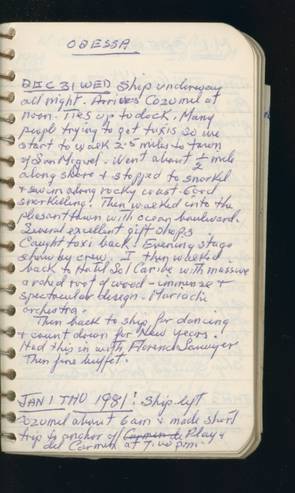 ODESSA
DEC 31 WED Ship underway
all night. Arrives Cozumel at
noon. Ties up to dock. Many
people trying to get taxis so we
start to walk 2.5 miles to town
of San Miguel. Went about 1/2 mile
along shore & stopped to snorkel
& swim along rocky coast. Good
snorkelling! Then walked into the
pleasant town with ocean boulevard.
Several excellent gift shops.
Caught taxi back. Evening stage
show by crew. I then walked
back to Hotel Sol Caribe with massive
arched roof of wood - immense &
spectacular design. Mariachi
orchestra.
Then back to ship for dancing
& count down for New Years.
Had this in with Florence Sawyer
Then fine buffet.
JAN 1 THU 1981! Ship left
Cozumel about 6 am & made short
trip to anchor of Playa
del Carmen at 7:00 pm.